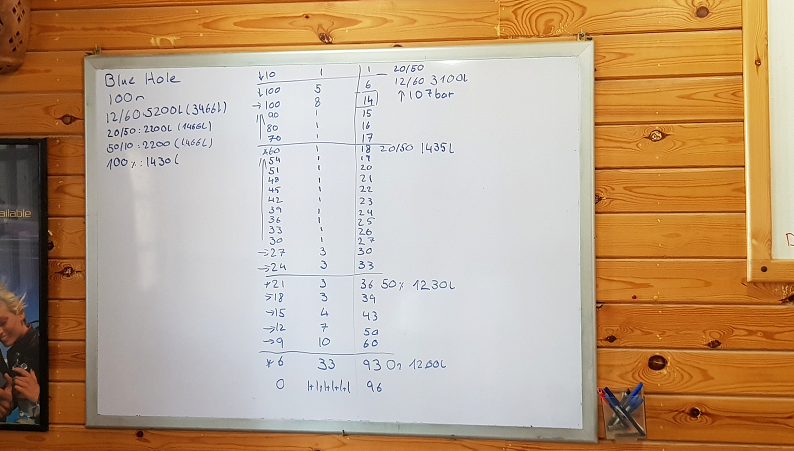 Blue Hole
100m
12/60 5200L (3466L)
20/50: 2200L (1466L)
50/10: 2200 (1466L)
100%: 1430L
↓10 1 1 — 20/50
↓100 5 6 12/60 3100L
→100 8 14 ↑107bar
90 1 15
80 1 16
70 1 17
*60 1 18 20/50 1435L
54 1 19
51 1 20
48 1 21
45 1 22
42 1 23
39 1 24
36 1 25
33 1 26
30 1 27
→27 3 30
→24 3 33
*21 3 36 50% 1230L
→18 3 39
→15 4 43
→12 7 50
→9 10 60
*6 33 93 O2 1200L
0 1+1+1+1+1 96
ailable